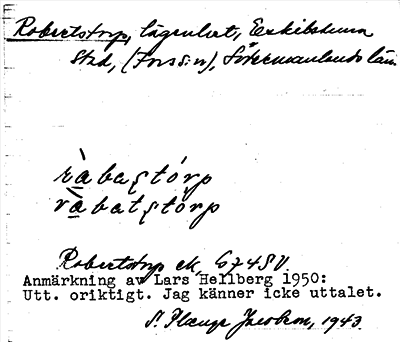 Robertstorp, lägenhet, Eskilstuna
stad, (Fors s:n), Södermanlands län
ràbaștórp
ràbatștórp
Robertstorp ek. 6745 V.
Anmärkning av Lars Hellberg 1950:
Utt. oriktigt. Jag känner icke uttalet.
Jacobson, 1943.